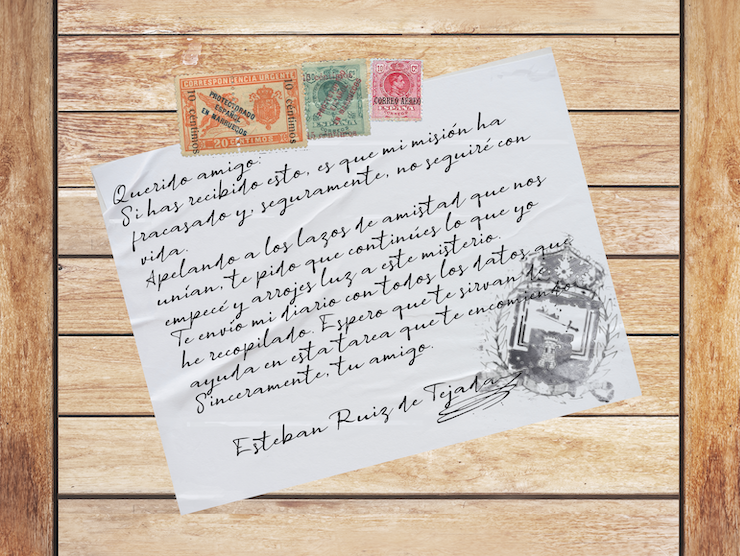 CORRESPONDENCIA URGENTE
10 céntimos
PROTECTORADO
ESPAÑOL
EN MARRUECOS
10 céntimos
20 CENTIMOS
CORREO AÉREO
ESPAÑA
Querido amigo:
Si has recibido esto, es que mi misión ha
fracasado y, seguramente, no seguiré con
vida.
Apelando a los lazos de amistad que nos
unían, te pido que continúes lo que yo
empecé y arrojes luz a este misterio.
Te envío mi diario con todos los datos que
he recopilado. Espero que te sirvan de
ayuda en esta tarea que te encomiendo.
Sinceramente, tu amigo.
Esteban Ruiz de Tejada